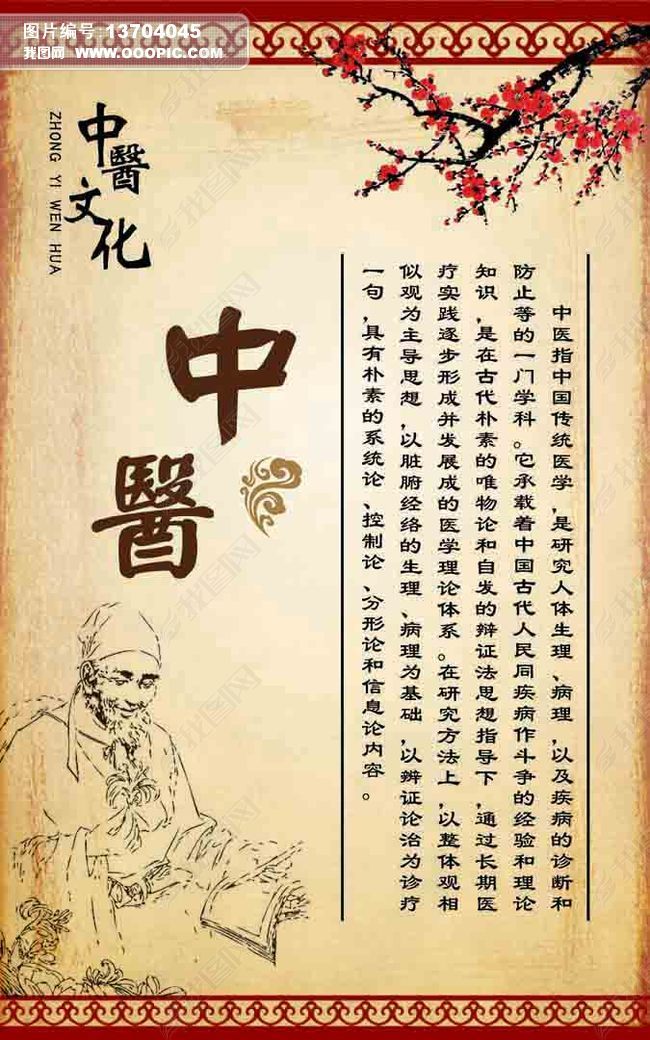 图片编号:13704045
我图网 www.OOOPIC.com
中醫文化
ZHONG YI WEN HUA
中醫
中医指中国传统医学,是研究人体生理、病理,以及疾病的诊断和
防止等的一门学科。它承载着中国古代人民同疾病作斗争的经验和理论
知识,是在古代朴素的唯物论和自发的辩证法思想指导下,通过长期医
疗实践逐步形成并发展成的医学理论体系。在研究方法上,以整体观相
似观为主导思想,以脏腑经络的生理、病理为基础,以辨证论治为诊疗
一句,具有朴素的系统论、控制论、分形论和信息论内容。